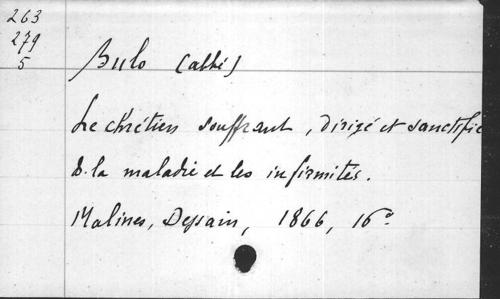 263
279
5
Bulo (abbé)
Le chrétien souffrant, dirigé et sanctifié
d. la maladie et les infirmités.
Malines, Dessain, 1866, 16°